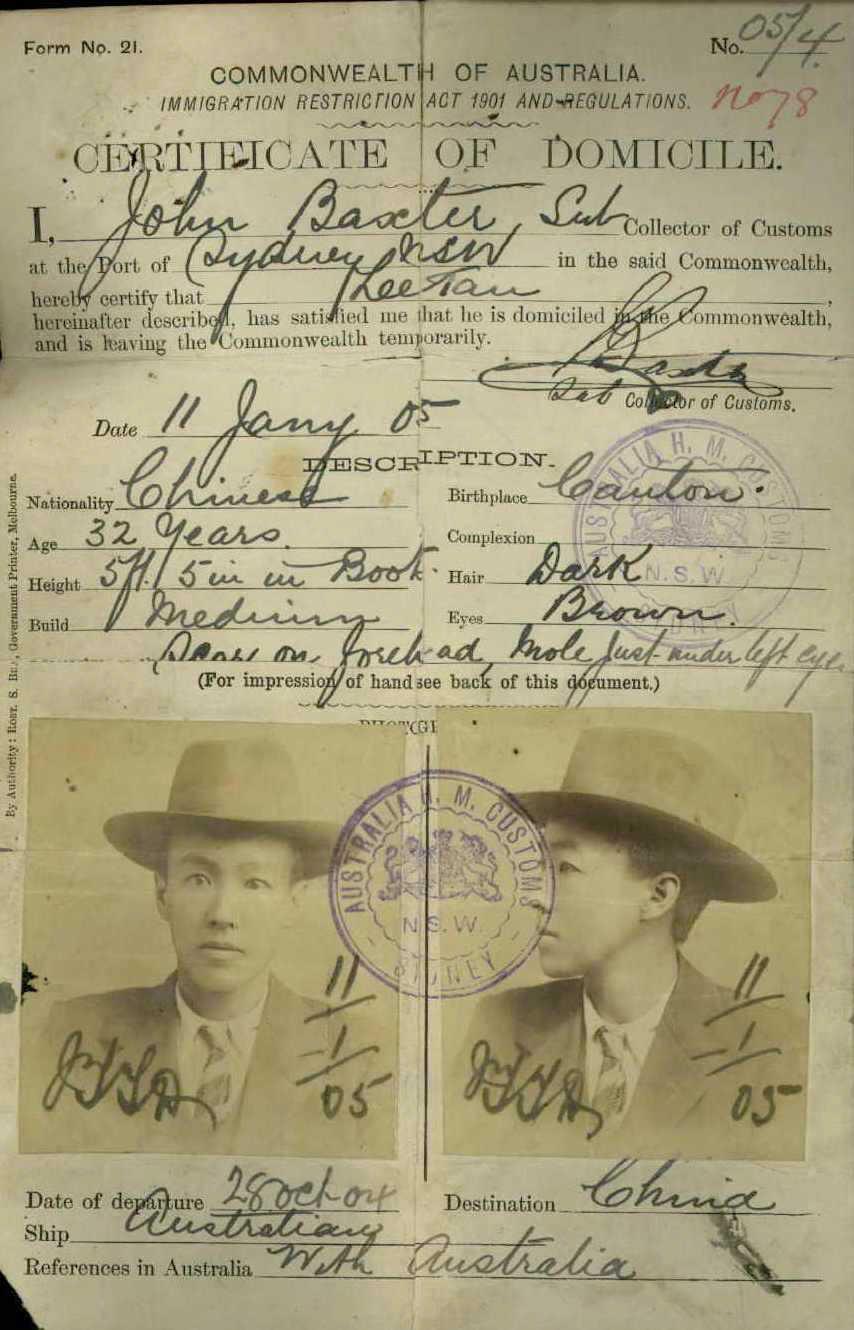 Form No. 21.
No. 05/4.
COMMONWEALTH OF AUSTRALIA.
IMMIGRATION RESTRICTION ACT 1901 AND REGULATIONS. No 78
CERTIFICATE OF DOMICILE.
I, John Baxter, Sub Collector of Customs
at the Port of Sydney NSW in the said Commonwealth,
hereby certify that Lee Tan,
hereinafter described, has satisfied me that he is domiciled in the Commonwealth,
and is leaving the Commonwealth temporarily.
Baxter
Sub Collector of Customs.
Date 11 Jany 05
DESCRIPTION.
Nationality Chinese Birthplace Canton.
Age 32 Years. Complexion
Height 5ft. 5 in in Boot. Hair Dark
Build Medium Eyes Brown.
on forehead, Mole just under left eye
(For impression of hand see back of this document.)
AUSTRALIA H. M. CUSTOMS
N.S.W
SYDNEY
AUSTRALIA H. M. CUSTOMS
N.S.W.
SYDNEY
11
1
05
11
1
05
Date of departure 28 Oct 04 Destination China
Ship Australian
References in Australia With Australia
By Authority: ROBT. S. Government Printer, Melbourne.